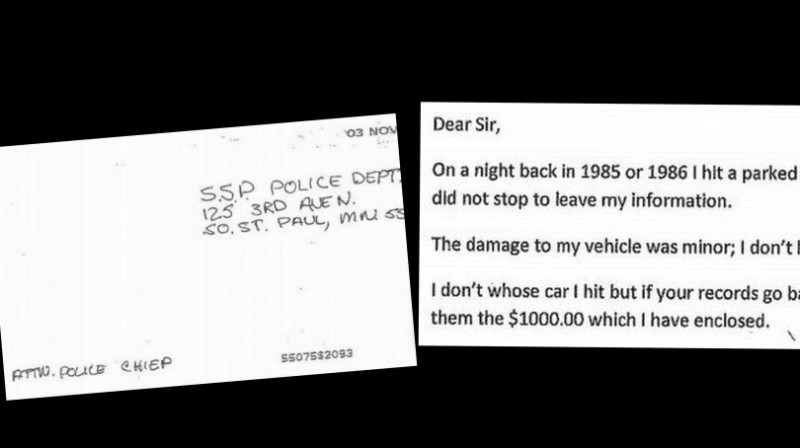 03 NOV
S.S.P. POLICE DEPT.
125 3RD AVE N.
SO. ST. PAUL, MN 55
ATTN. POLICE CHIEF
55075$2093
Dear Sir,
On a night back in 1985 or 1986 I hit a parked
did not stop to leave my information.
The damage to my vehicle was minor; I don't
I don't whose car I hit but if your records go
them the $1000.00 which I have enclosed.